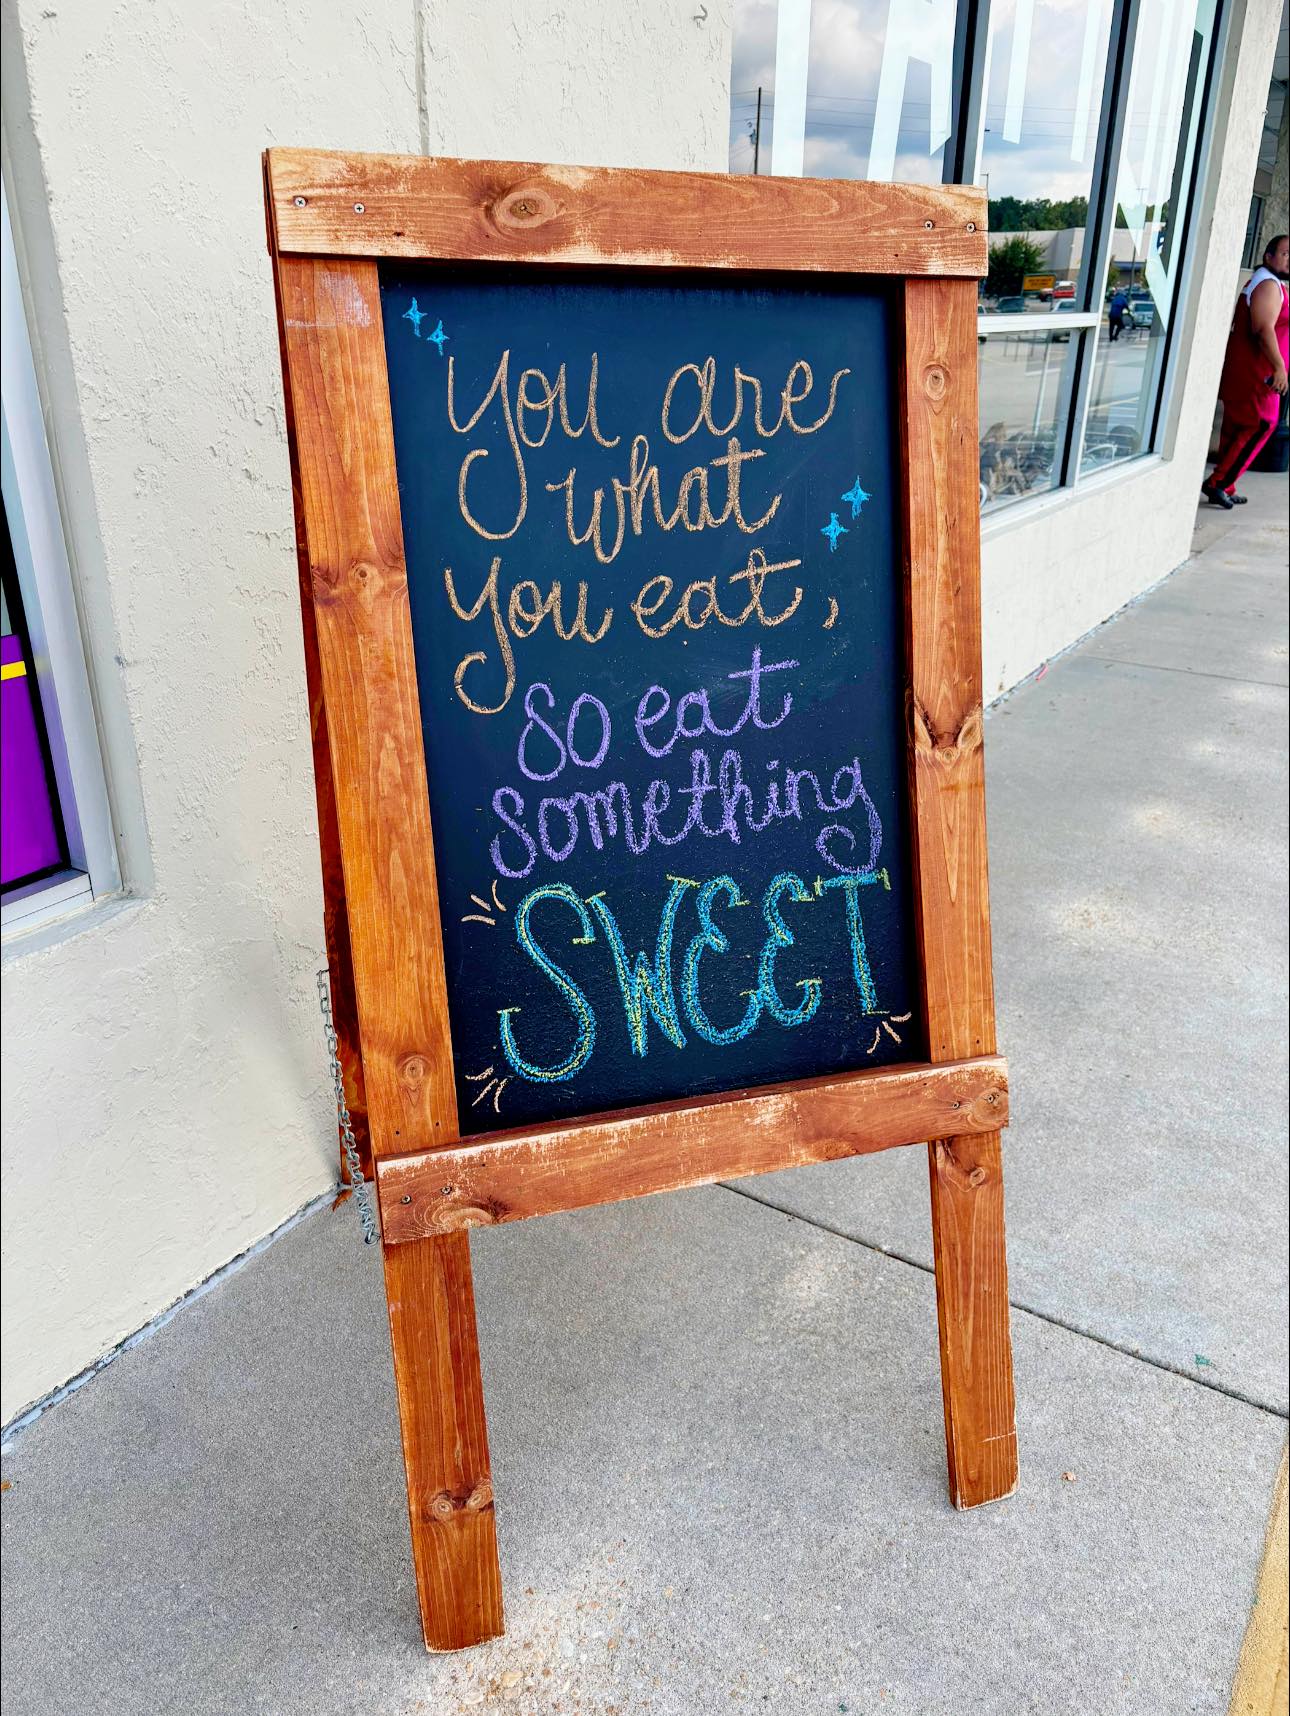 You are
what
you eat,
so eat
something
SWEET